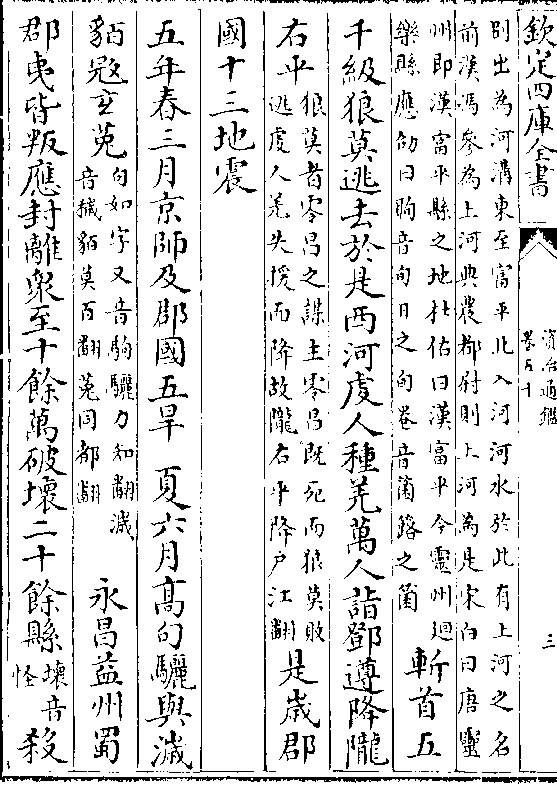 欽定四庫全書
資治通鑑
卷五十
三
別出為河溝東至富平北入河河水於此有上河之名
前漢馮參為上河典農都尉則上河為是宋白曰唐靈
州即漢富平縣之地杜佑曰漢富平今靈州迴
樂縣應劭曰眗音旬日之旬卷音箘簬之箘
斬首五
千級狼莫逃去於是西河䖍人種羌萬人詣鄧遵降隴
右平
狼莫者零昌之謀主零昌既死而狼莫敗
逃䖍人羌失援而降故隴右平降户江翻
是歲郡
國十三地震
五年春三月京師及郡國五旱 夏六月高句驪與濊
貊冦玄菟
句如字又音駒驪力知翻濊
音穢貊莫百翻菟同都翻
永昌益州蜀
郡夷皆叛應封離衆至十餘萬破壞二十餘縣
壞音
怪
殺